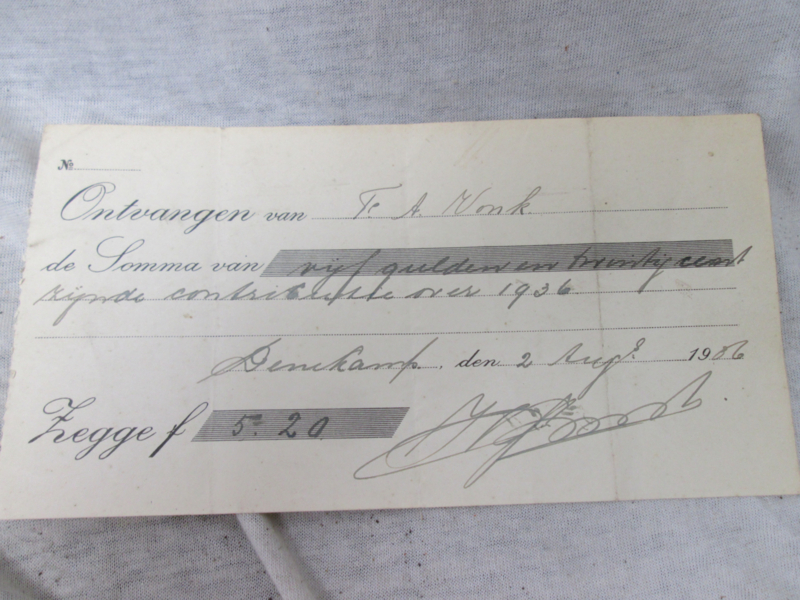 №
Ontvangen van A. Vonk
de Somma van vijf gulden en twintig cent
zijnde contributie over 1936
Denekamp, den 2 Aug. 1936
Zegge f 5.20